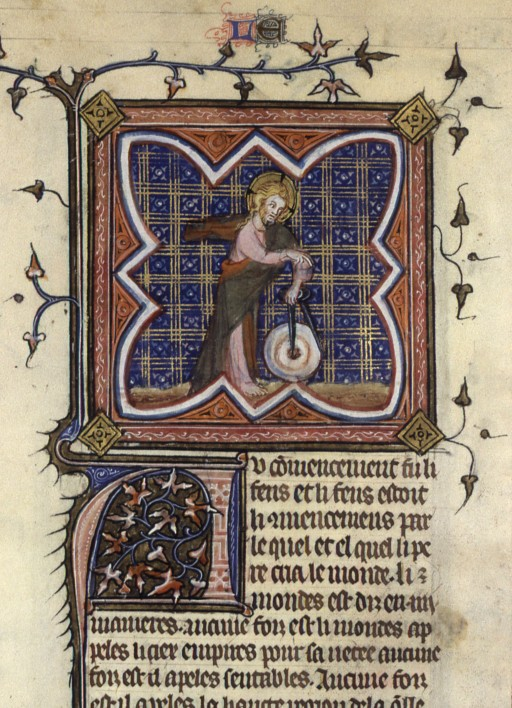 LE
Au cōmencement fu li
sens et li sens estoit
li ꝯmencemens par
le quel et el quel li pe
re cria le monde. li
mondes est dis en
manieres. aucune fois est li mondes ap
peles li ciex empires pour sa netee aucune
fois est il apeles sensibles. Aucune fois
est il apeles la haute region de la